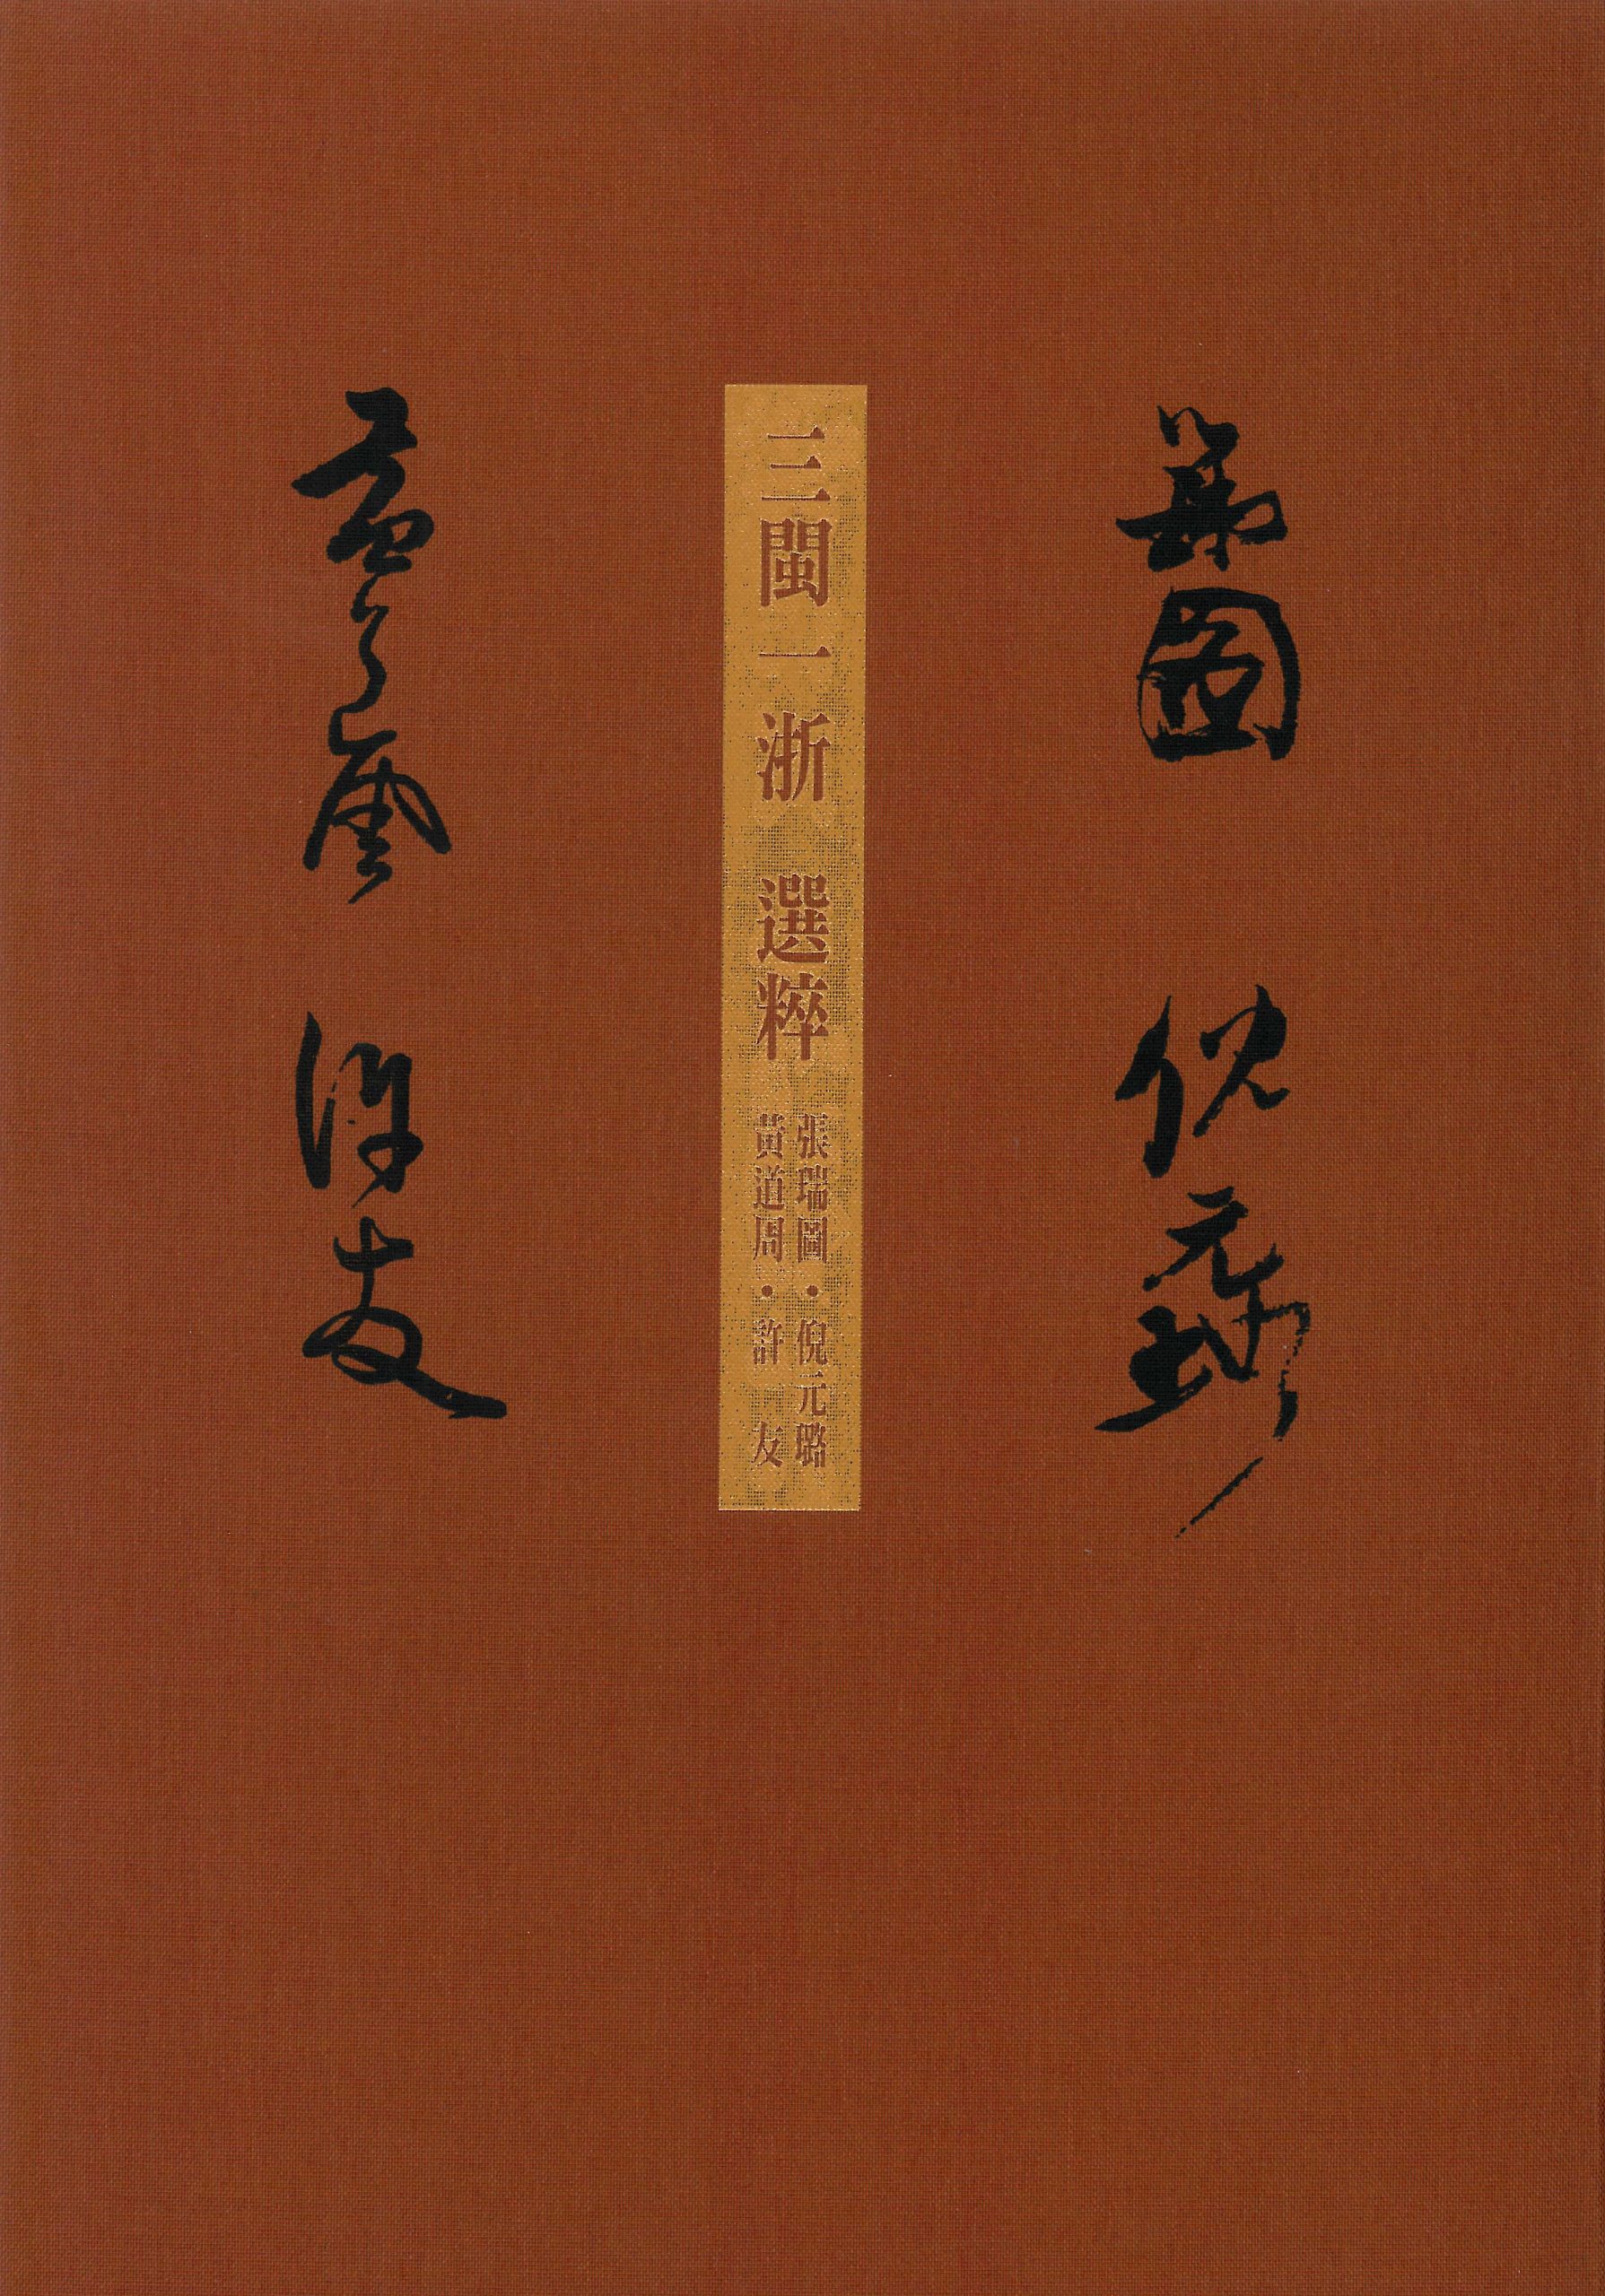 瑞圖 倪元璐
三閩一浙 選粹
張瑞圖・倪元璐
黃道周・許友
黃道周 許友